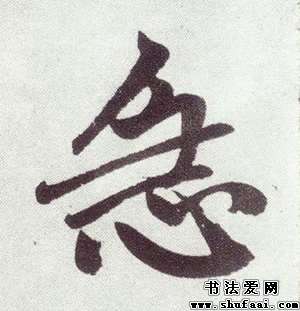 急
书法爱网
www.shufaai.com